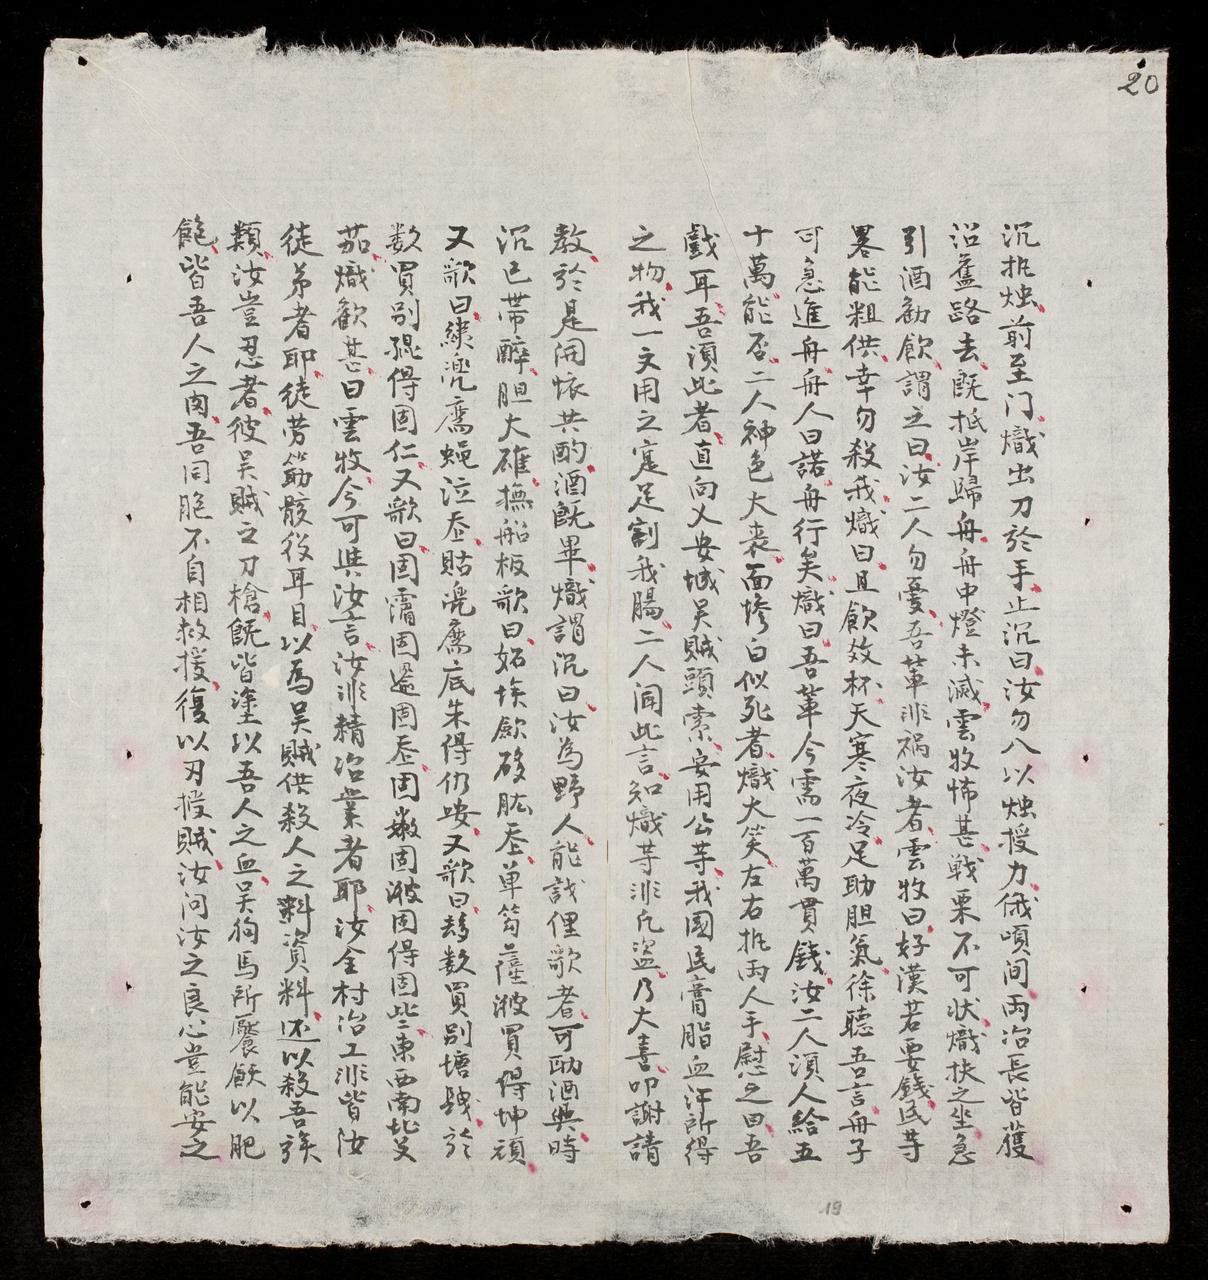 20
沉扺燭前至门熾出刀於手止沉曰汝勿入以燭授力俄頃间両冶長皆獲
沿舊路去既抵岸歸舟舟中燈未滅雲牧怖甚戦栗不可状熾扶之坐急
引酒勧飲謂之曰汝二人勿憂吾軰非禍汝者雲牧曰好漢若要錢民等
畧能粗供幸勿殺我熾曰且飲数杯天寒夜冷足助胆氣徐聴吾言舟子
可急進舟舟人曰諾舟行矣熾曰吾軰今需一百萬貫錢汝二人湏人給五
十萬能否二人神色大喪面惨白似死者熾大笑左右扺両人手慰之曰吾
戯耳吾湏此者直向乂安城吴賊頭索安用公等我國民膏脂血汗所得
之物我一文用之寔足割我腸二人闻此言知熾等非凢盗乃大喜叩謝請
教於是闲懐共酌酒既畢熾謂沉曰汝為野人能説俚歌者可助酒興時
沉已帯醉胆大確撫船板歌曰妬埃飲砖肱丕单𥬧薩波買得坤頑
又歌曰綉兠鷹蝇泣丕貼兠廉底朱得仍咹又歌曰越数買别塘踐於
数買别得固仁又歌曰固霤固逿固丕固嫩固波固得固些東西南北乂
茄熾歓甚曰雲牧今可與汝言汝非精冶業者耶汝全村冶工非皆汝
徒弟者耶徒劳筋骸役耳目以為吴賊供殺人之料資料还以殺吾族
類汝豈忍者彼吴賊之刀槍既皆塗以吾人之血吴狗馬所饜飫以肥
飽皆吾人之肉吾同胞不自相救援復以刃授賊汝问汝之良心豈能安之
19